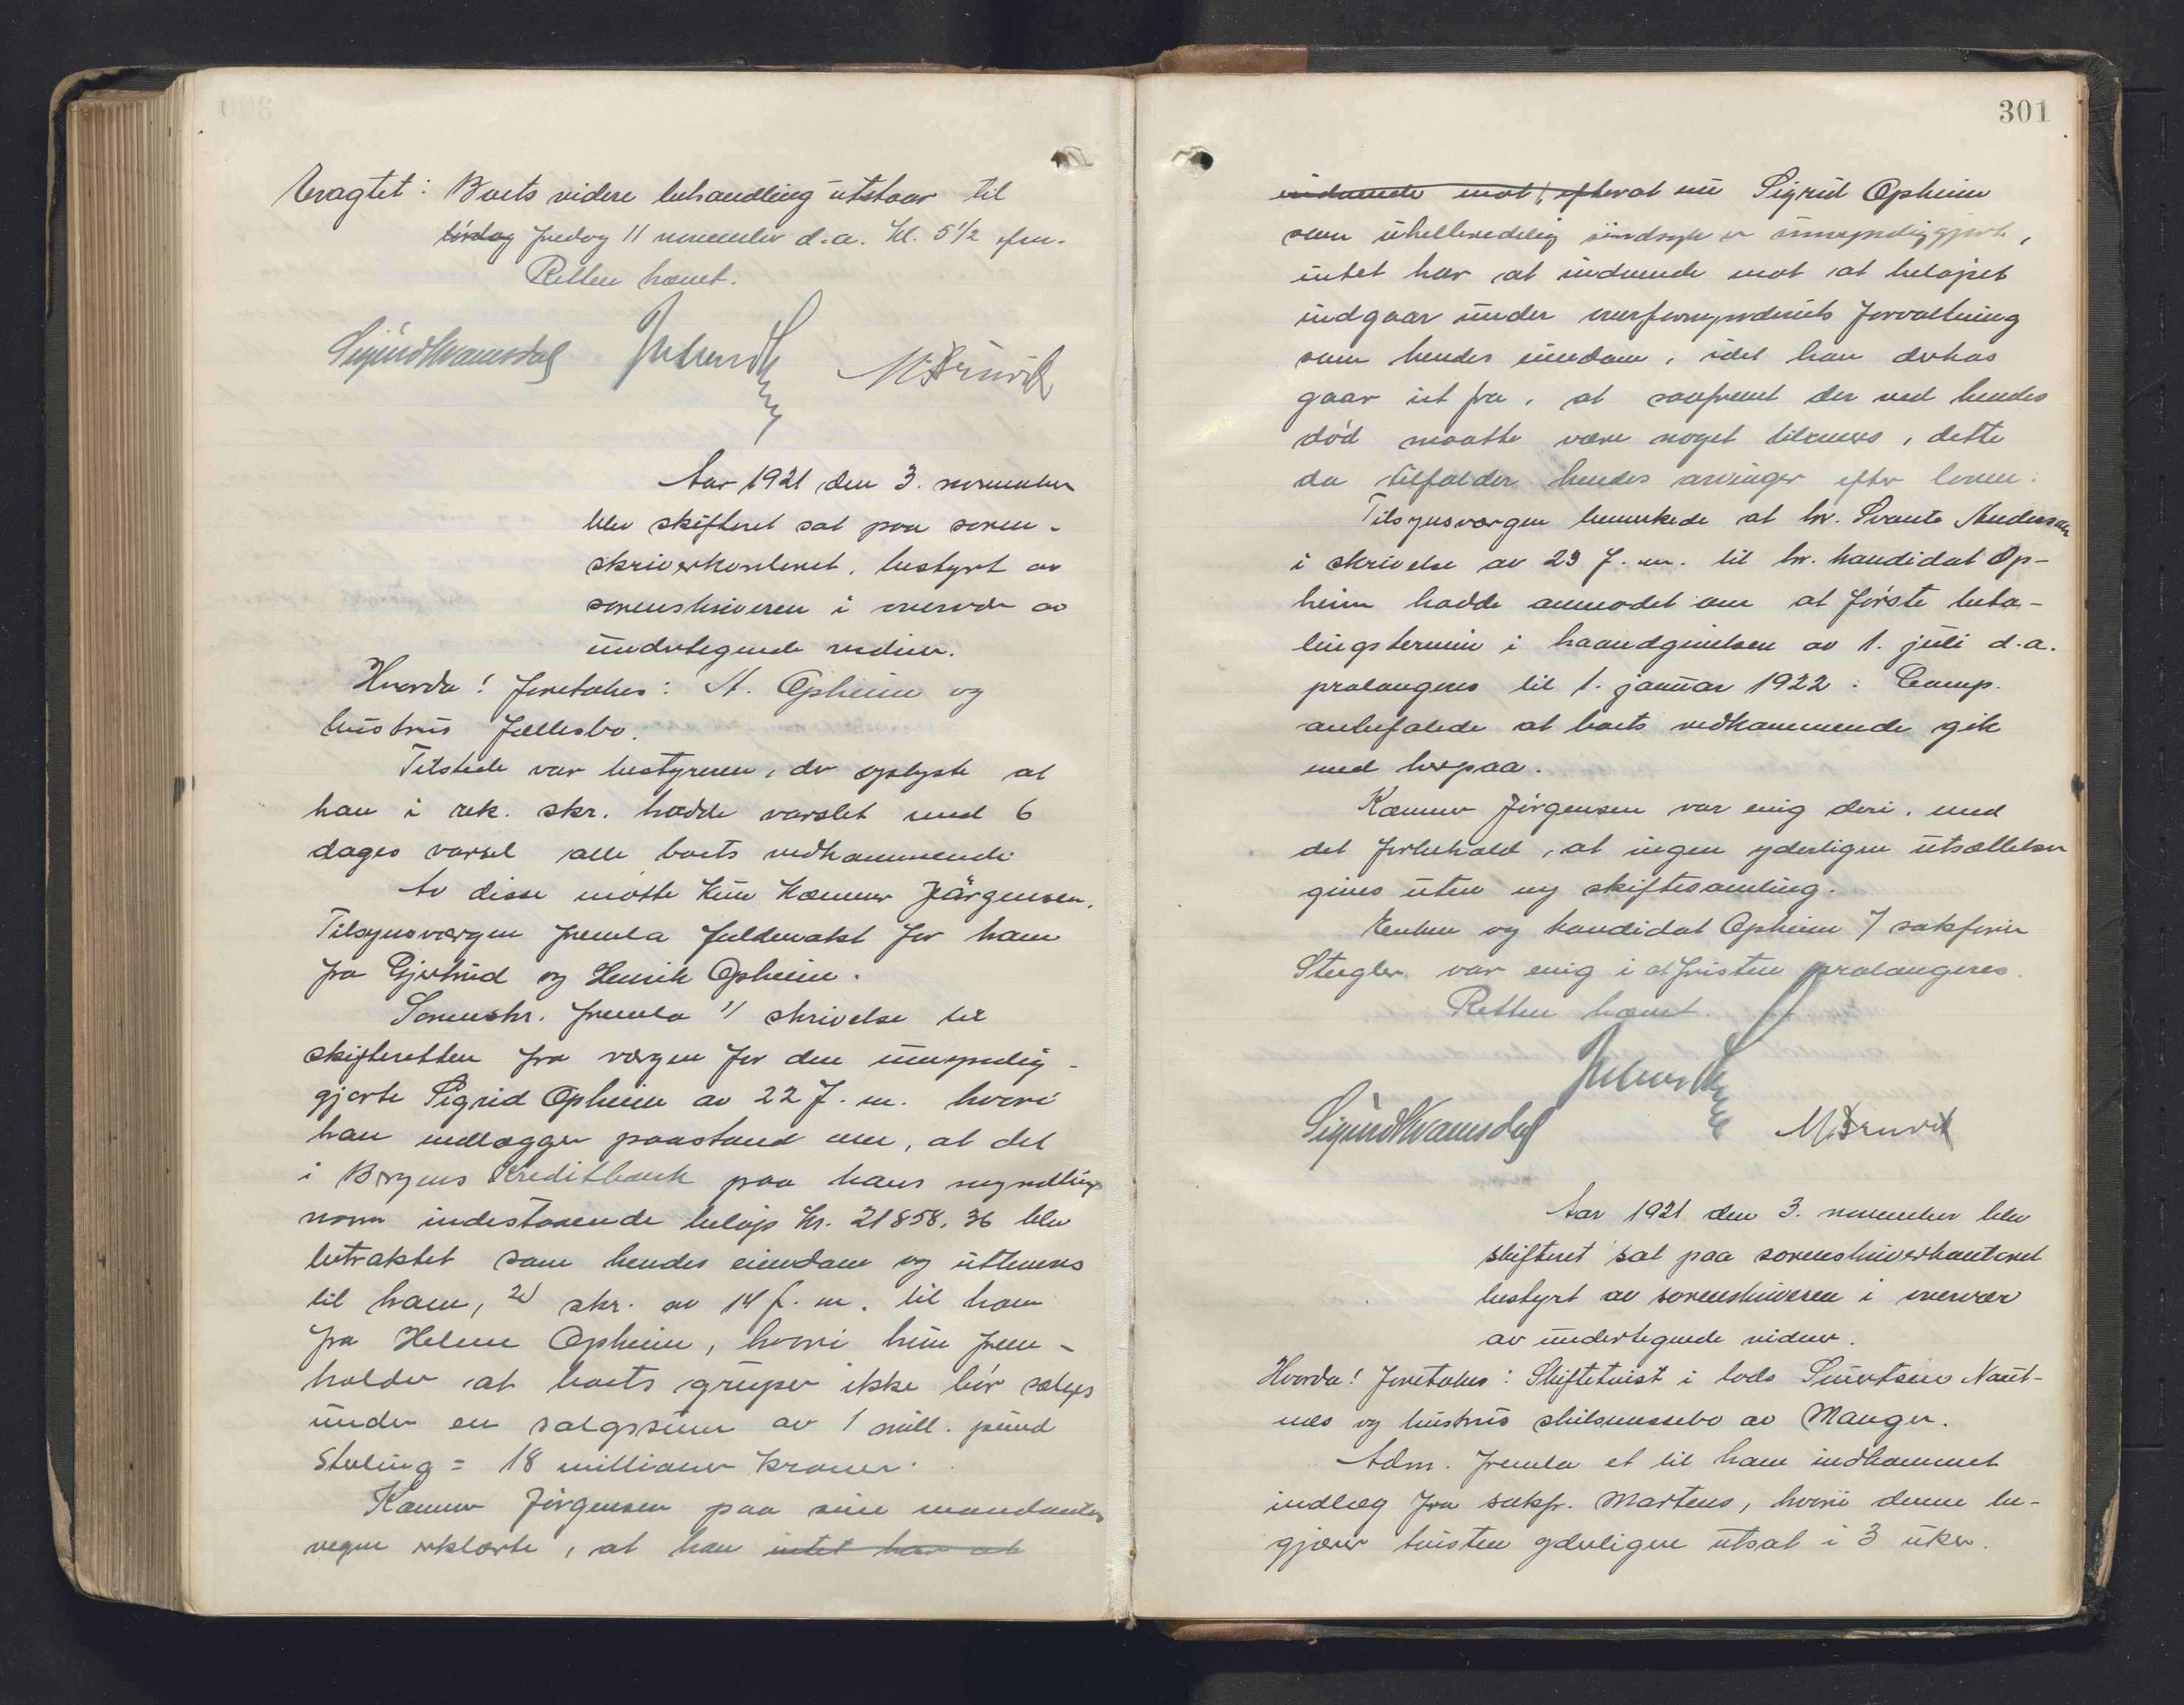 Eragtet: Boets videre behandling utstaar til
lørdag fredag 11 november d.a. kl. 5 1/2 efm.
Retten hævet.
Sigurd Kvamsdal M. Brurvik
Aar 1921 den 3. november
blev skifteret sat paa soren-
skriverkontoret, bestyrt av
sorenskriveren i overvær av
undertegnede vidner.
Hvorda! foretokes: A. Opheim og
hustrus fællesbo.
Tilstede var bestyreren, der oplyste at
han i rek. skr. hadde varslet med 6
dages varsel alle boets vedkommende.
Av disse møtte kun Kæmner Jørgensen.
Tilsynsværgen fremla fuldmakt for ham
fra Gjertrud og Henrik Opheim.
Sorenskr. fremla 1/ skrivelse til
skifteretten fra værgen for den umyndig-
gjorte Sigrid Opheim av 22 f. m. hvori
han nedlægger paastand om, at det
i Bergens Kreditbank paa hans myndlings
navn indestaaende beløp kr. 21858,36 blir
betraktet som hendes eiendom og utleveres
til ham, 2/ skr. av 14 f. m. til ham
fra Helene Opheim, hvori hun frem-
holder at boets gruper ikke bør sælges
under en salgssum av 1 mill. pund
sterling = 18 millioner kroner.
Kæmner Jørgensen paa sine mandanters
vegne erklærte, at han intet har at
301
indvende mot, efterat nu Sigrid Opheim
som uhelbredelig sindssyk er umyndiggjort,
intet har at indvende mot at beløpet
indgaar under overformynderiets forvaltning
som hendes eiendom, idet han derhos
gaar ut fra, at saafremt der ved hendes
død maatte være noget tilovers, dette
da tilfalder hendes arvinger efter loven.
Tilsynsværgen bemerkede at hr. Svante Anderson
i skrivelse av 29 f. m. til hr. kandidat Op-
heim hadde anmodet om at første beta-
lingstermin i haandgivelsen av 1. juli d.a.
prolongeres til 1. januar 1922. Comp.
anbefalede at boets vedkommende gik
med herpaa.
Kæmner Jørgensen var enig deri, med
det forbehold, at ingen yderligere utsættelser
gives uten ny skiftesamling.
Enken og kandidat Opheim v/ sakfører
Stegler var enig i at fristen prolongeres.
Retten hævet.
Sigurd Kvamsdal M. Brurvik
Aar 1921 den 3. november blev
skifteret sat paa sorenskriverkontoret
bestyrt av sorenskriveren i overvær
av undertegnede vidner.
Hvorda! foretokes: Skiftetvist i lods Sivertsen Naut-
næs og hustrus skilsmissebo av Manger.
Adm. fremla et til ham indkommet
indlæg fra sakf. Martens, hvori denne be-
gjærer tvisten yderligere utsat i 3 uker.